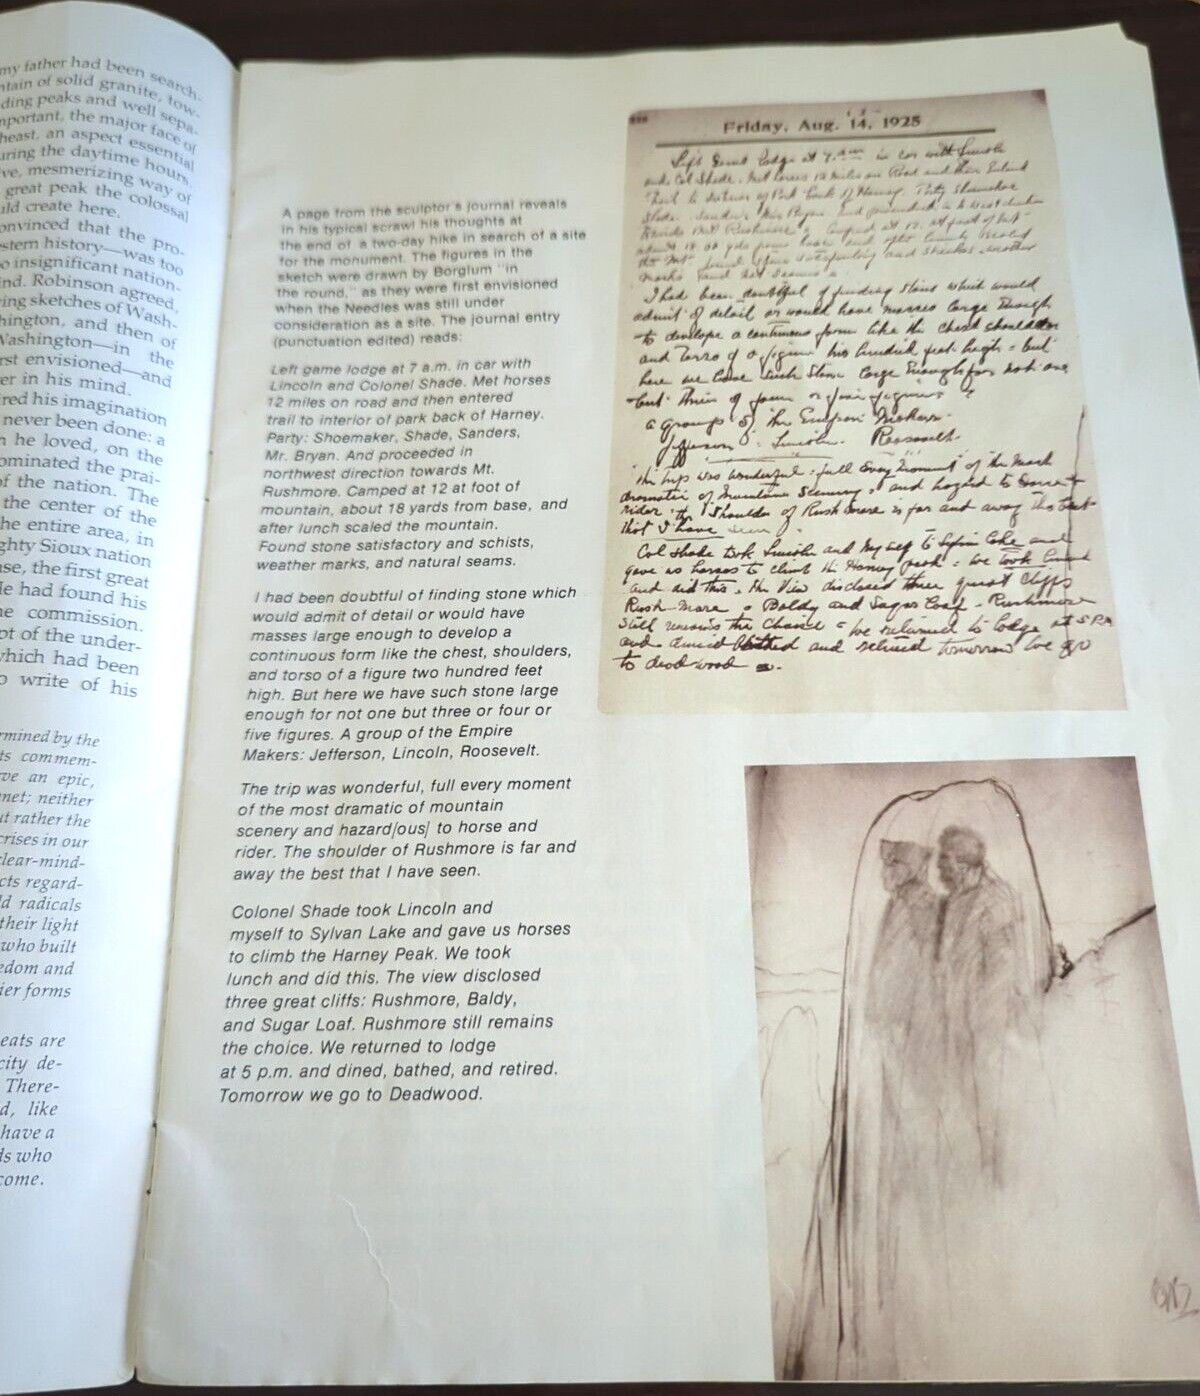 my father had been search-
ntain of solid granite, tow-
ding peaks and well sepa-
mportant, the major face of
heast, an aspect essential
uring the daytime hours.
ve, mesmerizing way of
great peak the colossal
uld create here.
onvinced that the pro-
stern history—was too
o insignificant nation-
ind. Robinson agreed,
ring sketches of Wash-
hington, and then of
Washington—in the
rst envisioned—and
er in his mind.
red his imagination
never been done: a
n he loved, on the
ominated the prai-
of the nation. The
the center of the
he entire area, in
ghty Sioux nation
ase, the first great
He had found his
ne commission.
pt of the under-
which had been
o write of his
rmined by the
ts commem-
ve an epic,
net; neither
ut rather the
crises in our
clear-mind-
cts regard-
ld radicals
their light
who built
edom and
ier forms
eats are
city de-
There-
d, like
have a
ds who
come.
A page from the sculptor's journal reveals
in his typical scrawl his thoughts at
the end of a two-day hike in search of a site
for the monument. The figures in the
sketch were drawn by Borglum "in
the round," as they were first envisioned
when the Needles was still under
consideration as a site. The journal entry
(punctuation edited) reads:
Left game lodge at 7 a.m. in car with
Lincoln and Colonel Shade. Met horses
12 miles on road and then entered
trail to interior of park back of Harney.
Party: Shoemaker, Shade, Sanders,
Mr. Bryan. And proceeded in
northwest direction towards Mt.
Rushmore. Camped at 12 at foot of
mountain, about 18 yards from base, and
after lunch scaled the mountain.
Found stone satisfactory and schists,
weather marks, and natural seams.
I had been doubtful of finding stone which
would admit of detail or would have
masses large enough to develop a
continuous form like the chest, shoulders,
and torso of a figure two hundred feet
high. But here we have such stone large
enough for not one but three or four or
five figures. A group of the Empire
Makers: Jefferson, Lincoln, Roosevelt.
The trip was wonderful, full every moment
of the most dramatic of mountain
scenery and hazard[ous] to horse and
rider. The shoulder of Rushmore is far and
away the best that I have seen.
Colonel Shade took Lincoln and
myself to Sylvan Lake and gave us horses
to climb the Harney Peak. We took
lunch and did this. The view disclosed
three great cliffs: Rushmore, Baldy,
and Sugar Loaf. Rushmore still remains
the choice. We returned to lodge
at 5 p.m. and dined, bathed, and retired.
Tomorrow we go to Deadwood.
Friday, Aug. 14, 1925
Left Game Lodge at 7. am in car with Lincoln
and Col Shade. Met horses 12 miles on Road and then Entered
Trail to interior of Park back of Harney. Party Shoemaker
Shade. Sanders Mr. Bryan And proceeded in
towards Mt Rushmore. Camped at 12. at foot of Mt
about 18 yds from base and after lunch scaled
the Mt found stone satisfactory and
marks and nat seams
I had been doubtful of finding stone which would
admit of detail or would have masses large enough
to develope a continuous form like the chest shoulders
and Torso of a figure two hundred feet high - but
here we have such stone large enough for not one
but three of four or five figures
a group of the Empire Makers.
Jefferson : Lincoln. Roosevelt.
The trip was wonderful : full every moment of the most
dramatic of Mountain Scenery, and hazard to horse &
rider. the shoulder of Rushmore is far and away the best
that I have seen
Col Shade took Lincoln and Myself to Sylvan Lake and
gave us horses to climb the Harney peak - we took lunch
and did this. the View disclosed three great cliffs
Rushmore . Baldy and Sugar Loaf . Rushmore
still remains the choice - we returned to lodge at 5 P.M
and dined bathed and retired tomorrow we go
to deadwood